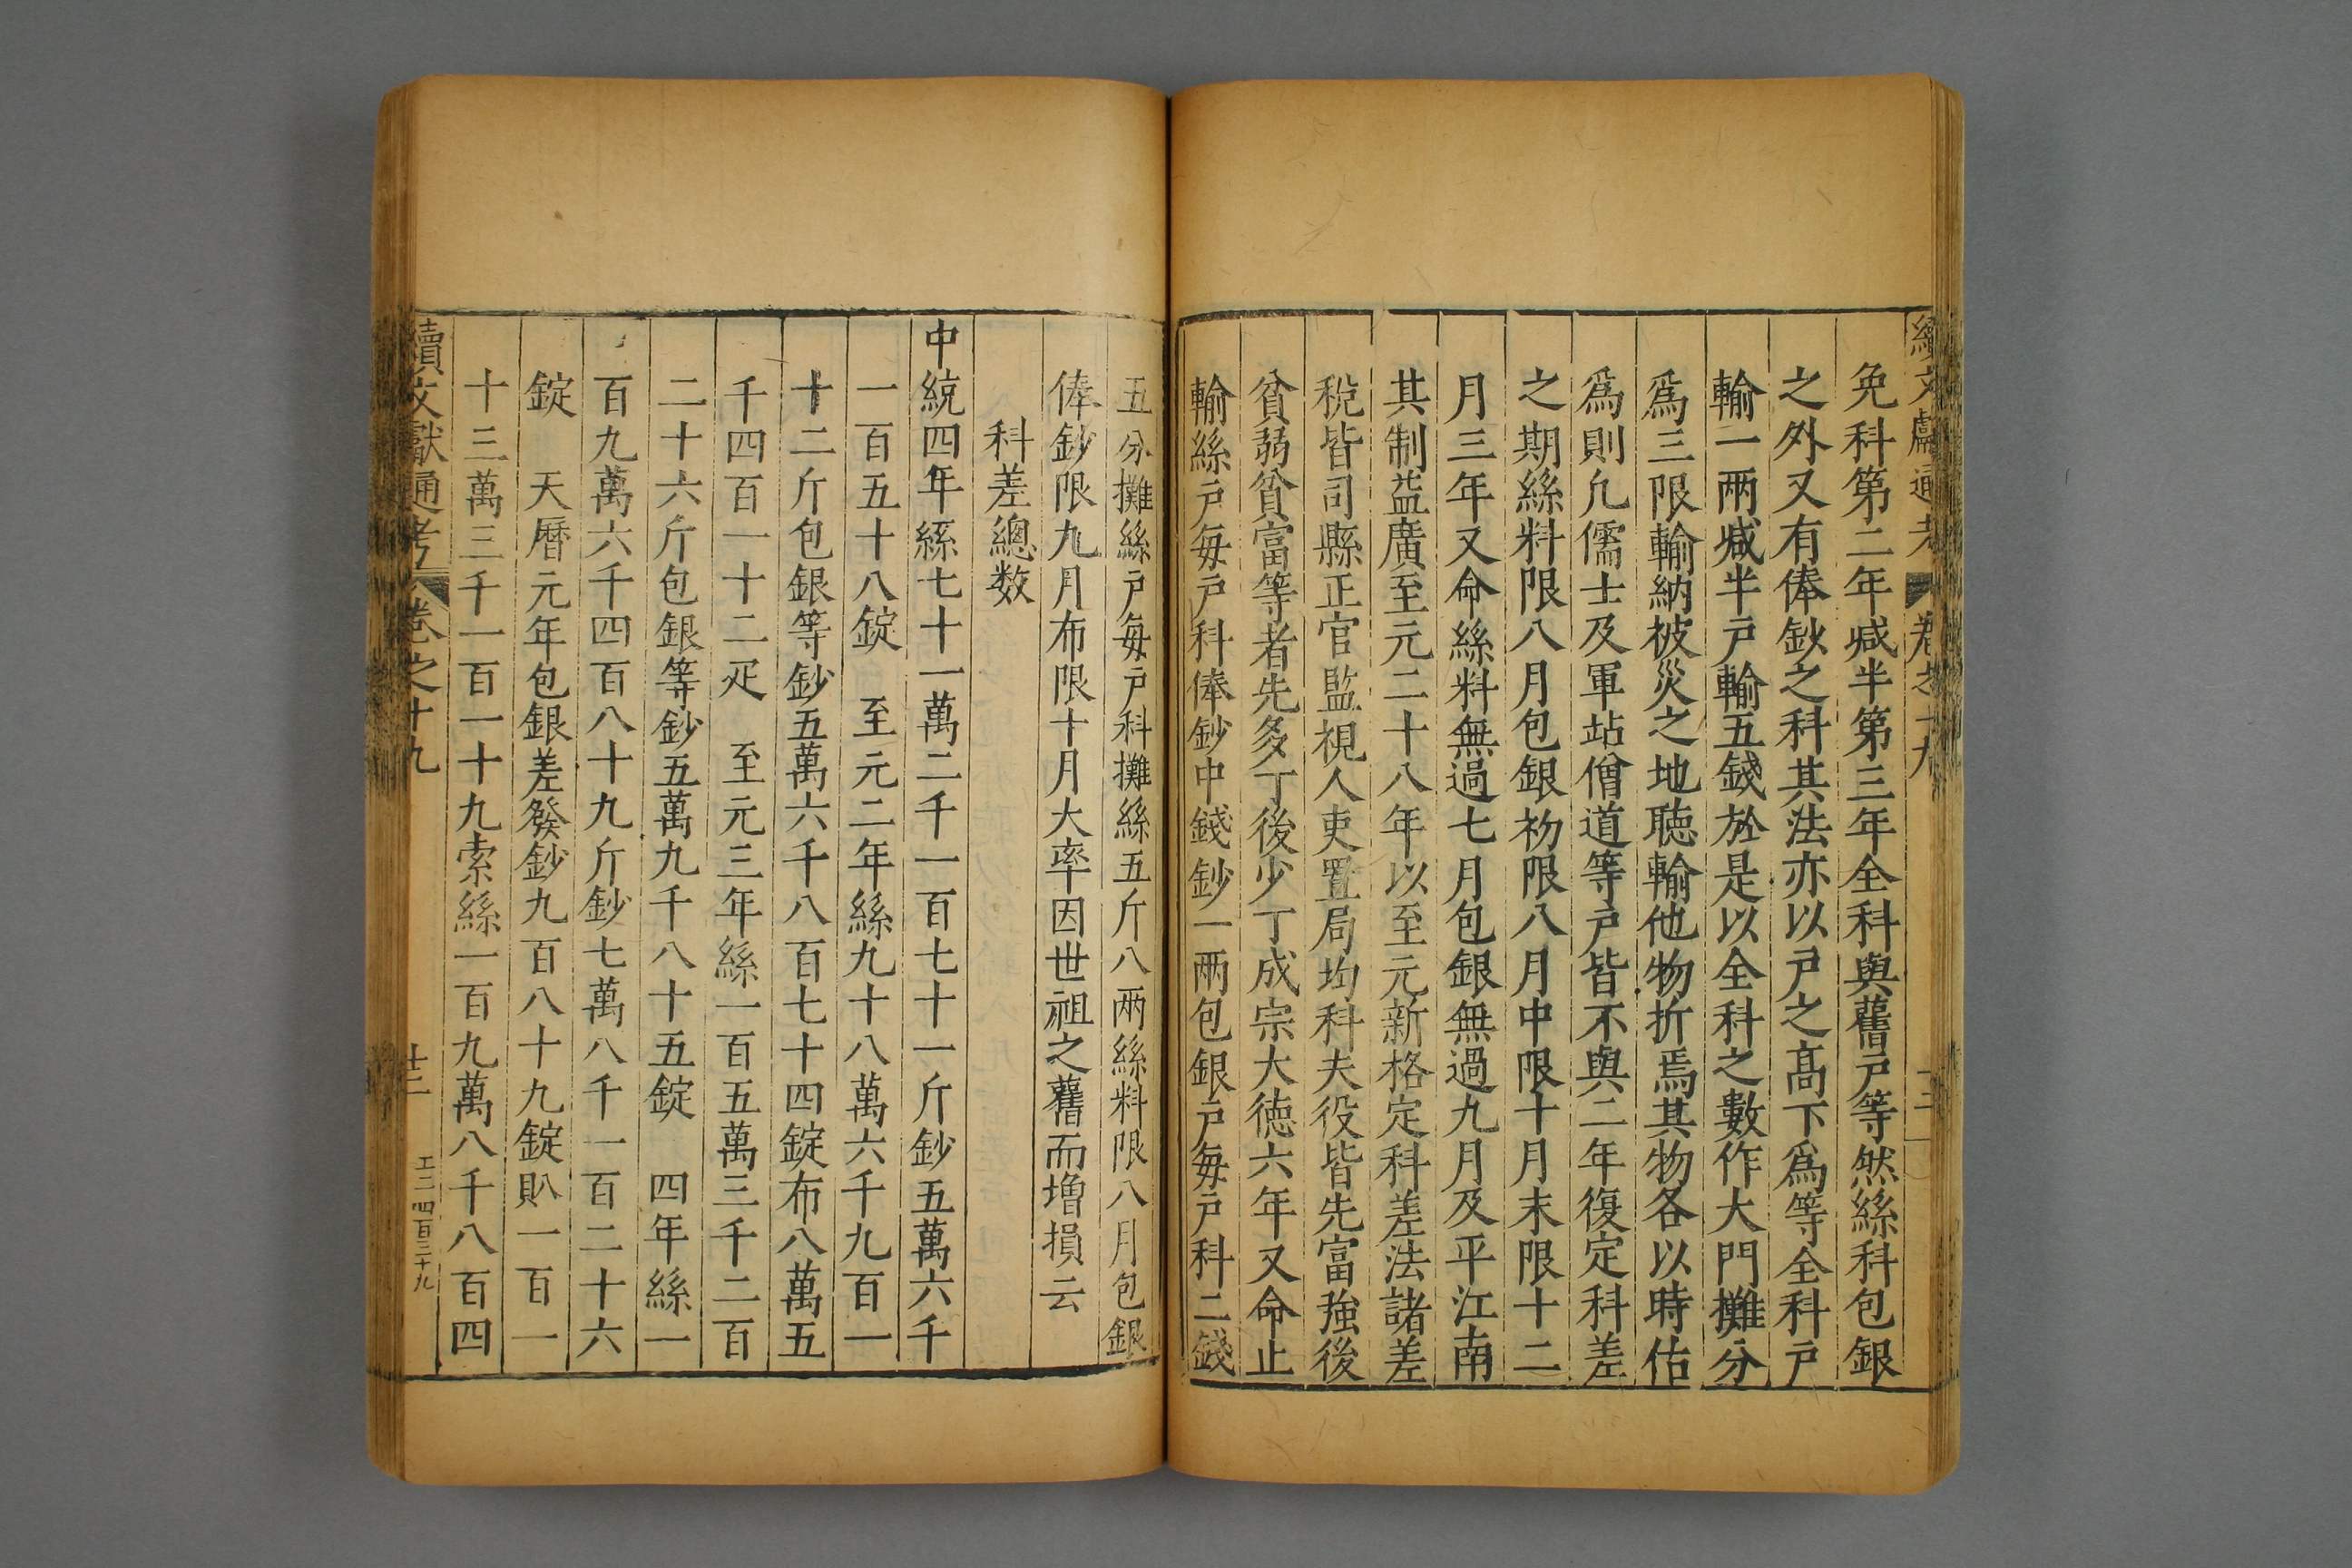 續文獻通考 卷之十九
免科第二年减半第三年全科與舊戸等然絲科包銀
之外又有俸鈔之科其法亦以戸之髙下爲等全科戸
輸一兩减半戸輸五錢於是以全科之數作大門攤分
爲三限輸納被災之地聽輸他物折焉其物各以時估
爲則凢儒士及軍站僧道等戸皆不與二年復定科差
之期絲料限八月包銀初限八月中限十月末限十二
月三年又命絲料無過七月包銀無過九月及平江南
其制益廣至元二十八年以至元新格定科差法諸差
稅皆司縣正官監視人吏置局均科夫役皆先富強後
貧弱貧富等者先多丁後少丁成宗大德六年又命止
輸絲戸每戸科俸鈔中錢鈔一兩包銀戸每戸科二錢
五分攤絲戸每戸科攤絲五斤八兩絲料限八月包銀
俸鈔限九月布限十月大率因世祖之舊而增損云
科差總数
中統四年絲七十一萬二千一百七十一斤鈔五萬六千
一百五十八錠 至元二年絲九十八萬六千九百一
十二斤包銀等鈔五萬六千八百七十四錠布八萬五
千四百一十二疋 至元三年絲一百五萬三千二百
二十六斤包銀等鈔五萬九千八十五錠 四年絲一
百九萬六千四百八十九斤鈔七萬八千一百二十六
錠 天曆元年包銀差發鈔九百八十九錠𧴩一百一
十三萬三千一百一十九索絲一百九萬八千八百四
續文獻通考 卷之十九 廿二 四百三十九